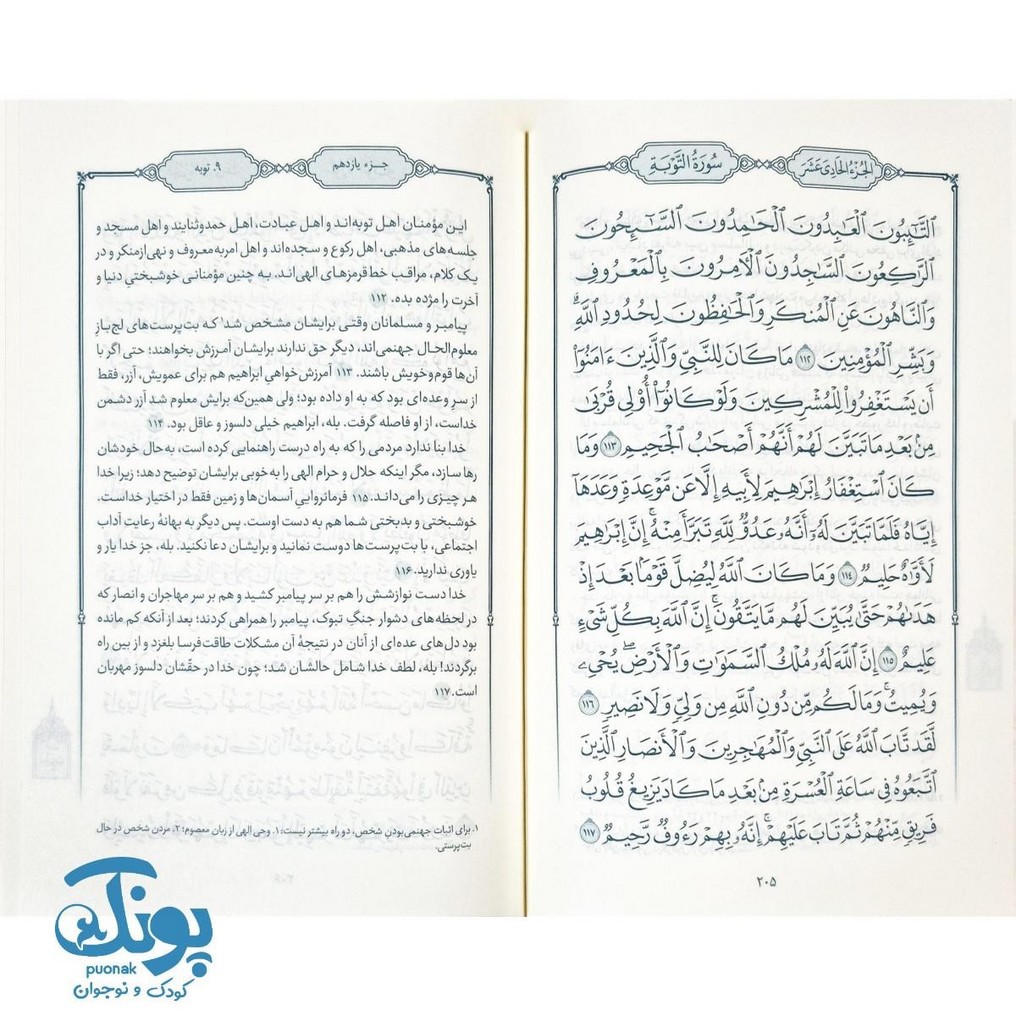 الجُزءُ الحَادِیَ عَشَرَ
سُورَةُ التَّوۡبَةِ
ٱلتَّٰٓئِبُونَ ٱلۡعَٰبِدُونَ ٱلۡحَٰمِدُونَ ٱلسَّٰٓئِحُونَ
ٱلرَّٰكِعُونَ ٱلسَّٰجِدُونَ ٱلۡأٓمِرُونَ بِٱلۡمَعۡرُوفِ
وَٱلنَّاهُونَ عَنِ ٱلۡمُنكَرِ وَٱلۡحَٰفِظُونَ لِحُدُودِ ٱللَّهِۗ
وَبَشِّرِ ٱلۡمُؤۡمِنِينَ ۱۱۲ مَا كَانَ لِلنَّبِيِّ وَٱلَّذِينَ ءَامَنُوٓاْ
أَن يَسۡتَغۡفِرُواْ لِلۡمُشۡرِكِينَ وَلَوۡ كَانُوٓاْ أُوْلِي قُرۡبَىٰ
مِنۢ بَعۡدِ مَا تَبَيَّنَ لَهُمۡ أَنَّهُمۡ أَصۡحَٰبُ ٱلۡجَحِيمِ ۱۱۳ وَمَا
كَانَ ٱسۡتِغۡفَارُ إِبۡرَٰهِيمَ لِأَبِيهِ إِلَّا عَن مَّوۡعِدَةٖ وَعَدَهَآ
إِيَّاهُ فَلَمَّا تَبَيَّنَ لَهُۥٓ أَنَّهُۥ عَدُوّٞ لِّلَّهِ تَبَرَّأَ مِنۡهُۚ إِنَّ إِبۡرَٰهِيمَ
لَأَوَّٰهٌ حَلِيمٞ ۱۱۴ وَمَا كَانَ ٱللَّهُ لِيُضِلَّ قَوۡمَۢا بَعۡدَ إِذۡ
هَدَىٰهُمۡ حَتَّىٰ يُبَيِّنَ لَهُم مَّا يَتَّقُونَۚ إِنَّ ٱللَّهَ بِكُلِّ شَيۡءٍ
عَلِيمٌ ۱۱۵ إِنَّ ٱللَّهَ لَهُۥ مُلۡكُ ٱلسَّمَٰوَٰتِ وَٱلۡأَرۡضِۖ يُحۡيِۦ
وَيُمِيتُۚ وَمَا لَكُم مِّن دُونِ ٱللَّهِ مِن وَلِيّٖ وَلَا نَصِيرٖ ۱۱۶
لَّقَد تَّابَ ٱللَّهُ عَلَى ٱلنَّبِيِّ وَٱلۡمُهَٰجِرِينَ وَٱلۡأَنصَارِ ٱلَّذِينَ
ٱتَّبَعُوهُ فِي سَاعَةِ ٱلۡعُسۡرَةِ مِنۢ بَعۡدِ مَا كَادَ يَزِيغُ قُلُوبُ
فَرِيقٖ مِّنۡهُمۡ ثُمَّ تَابَ عَلَيۡهِمۡۚ إِنَّهُۥ بِهِمۡ رَءُوفٞ رَّحِيمٞ ۱۱۷
۲۰۵
جزء یازدهم
۹. توبه
این مؤمنان اهل توبه‌اند و اهل عبادت، اهل حمدوثنایند و اهل مسجد و
جلسه‌های مذهبی، اهل رکوع و سجده‌اند و اهل امربه‌معروف و نهی‌ازمنکر و در
یک کلام، مراقب خط‌قرمزهای الهی‌اند. به چنین مؤمنانی خوشبختیِ دنیا و
آخرت را مژده بده. ۱۱۲
پیامبر و مسلمانان وقتی برایشان مشخص شد۱ که بت‌پرست‌های لج‌بازِ
معلوم‌الحال جهنمی‌اند، دیگر حق ندارند برایشان آمرزش بخواهند؛ حتی اگر با
آن‌ها قوم‌وخویش باشند. ۱۱۳ آمرزش‌خواهیِ ابراهیم هم برای عمویش، آزر، فقط
از سرِ وعده‌ای بود که به او داده بود؛ ولی همین‌که برایش معلوم شد آزر دشمن
خداست، از او فاصله گرفت. بله، ابراهیم خیلی دلسوز و عاقل بود. ۱۱۴
خدا بنا ندارد مردمی را که به راه درست راهنمایی کرده است، به‌حال خودشان
رها سازد، مگر اینکه حلال و حرام الهی را به‌خوبی برایشان توضیح دهد؛ زیرا خدا
هر چیزی را می‌داند. ۱۱۵ فرمانرواییِ آسمان‌ها و زمین فقط در اختیار خداست.
خوشبختی و بدبختی شما هم به دست اوست. پس دیگر به بهانهٔ رعایت آداب
اجتماعی، با بت‌پرست‌ها دوست نمانید و برایشان دعا نکنید. بله، جز خدا یار و
یاوری ندارید. ۱۱۶
خدا دست نوازشش را هم بر سر پیامبر کشید و هم بر سر مهاجران و انصار که
در لحظه‌های دشوار جنگِ تبوک، پیامبر را همراهی کردند؛ بعد از آنکه کم مانده
بود دل‌های عده‌ای از آنان در نتیجهٔ آن مشکلات طاقت‌فرسا بلغزد و از بین راه
برگردند! بله، لطف خدا شامل حالشان شد؛ چون خدا در حقّشان دلسوز مهربان
است. ۱۱۷
۱. برای اثبات جهنمی‌بودنِ شخص، دو راه بیشتر نیست: ۱. وحی الهی از زبان معصوم؛ ۲. مردن شخص در حال
بت‌پرستی.
پونک
puonak
کودک و نوجوان